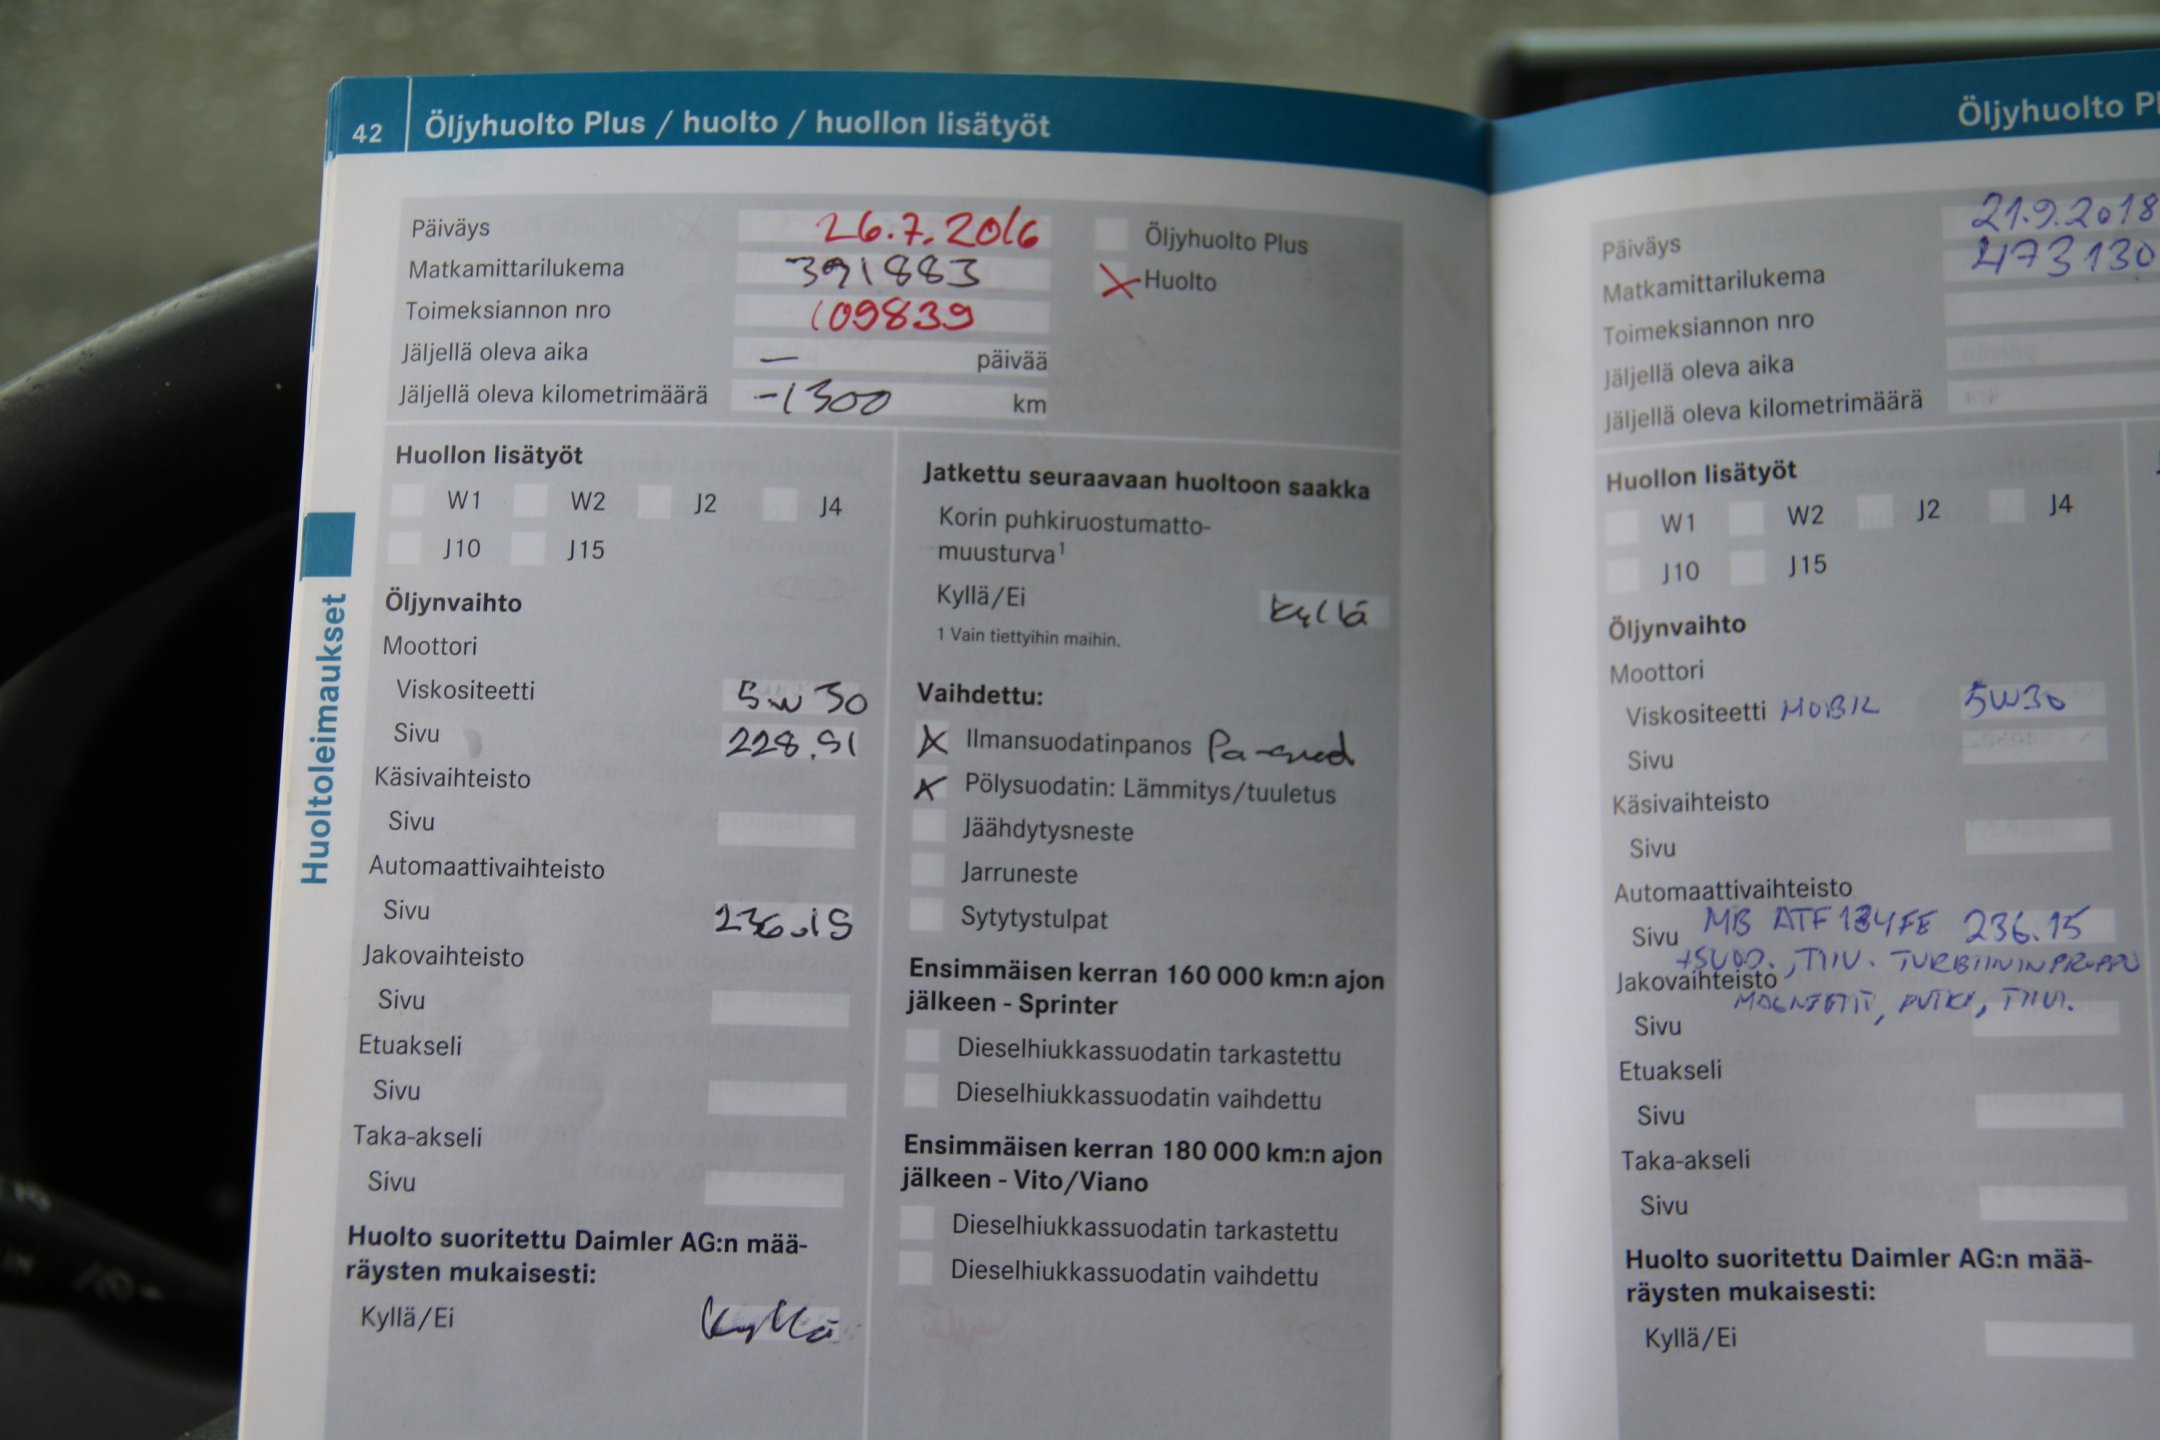 42 Öljyhuolto Plus / huolto / huollon lisätyöt
Päiväys 26.7.2016
Matkamittarilukema 391883
Toimeksiannon nro 109839
Jäljellä oleva aika — päivää
Jäljellä oleva kilometrimäärä -1300 km
Öljyhuolto Plus
X Huolto
Huollon lisätyöt
W1 W2 J2 J4
J10 J15
Öljynvaihto
Moottori
Viskositeetti 5w30
Sivu 228.51
Käsivaihteisto
Sivu
Automaattivaihteisto
Sivu 236.15
Jakovaihteisto
Sivu
Etuakseli
Sivu
Taka-akseli
Sivu
Huolto suoritettu Daimler AG:n mää-
räysten mukaisesti:
Kyllä/Ei Kyllä
Jatkettu seuraavaan huoltoon saakka
Korin puhkiruostumatto-
muusturva1
Kyllä/Ei Kyllä
1 Vain tiettyihin maihin.
Vaihdettu:
X Ilmansuodatinpanos Pa-suod
X Pölysuodatin: Lämmitys/tuuletus
Jäähdytysneste
Jarruneste
Sytytystulpat
Ensimmäisen kerran 160 000 km:n ajon
jälkeen - Sprinter
Dieselhiukkassuodatin tarkastettu
Dieselhiukkassuodatin vaihdettu
Ensimmäisen kerran 180 000 km:n ajon
jälkeen - Vito/Viano
Dieselhiukkassuodatin tarkastettu
Dieselhiukkassuodatin vaihdettu
Huoltoleimaukset
Öljyhuolto Pl
Päiväys 21.9.2018
Matkamittarilukema 473130
Toimeksiannon nro
Jäljellä oleva aika
Jäljellä oleva kilometrimäärä
Huollon lisätyöt
W1 W2 J2 J4
J10 J15
Öljynvaihto
Moottori
Viskositeetti MOBIL 5W30
Sivu
Käsivaihteisto
Sivu
Automaattivaihteisto
Sivu MB ATF 134FE 236.15
+SUOD., TIIV.
Jakovaihteisto
MAGNEETIT, PUTKI, TIIV.
Sivu
Etuakseli
Sivu
Taka-akseli
Sivu
Huolto suoritettu Daimler AG:n mää-
räysten mukaisesti:
Kyllä/Ei